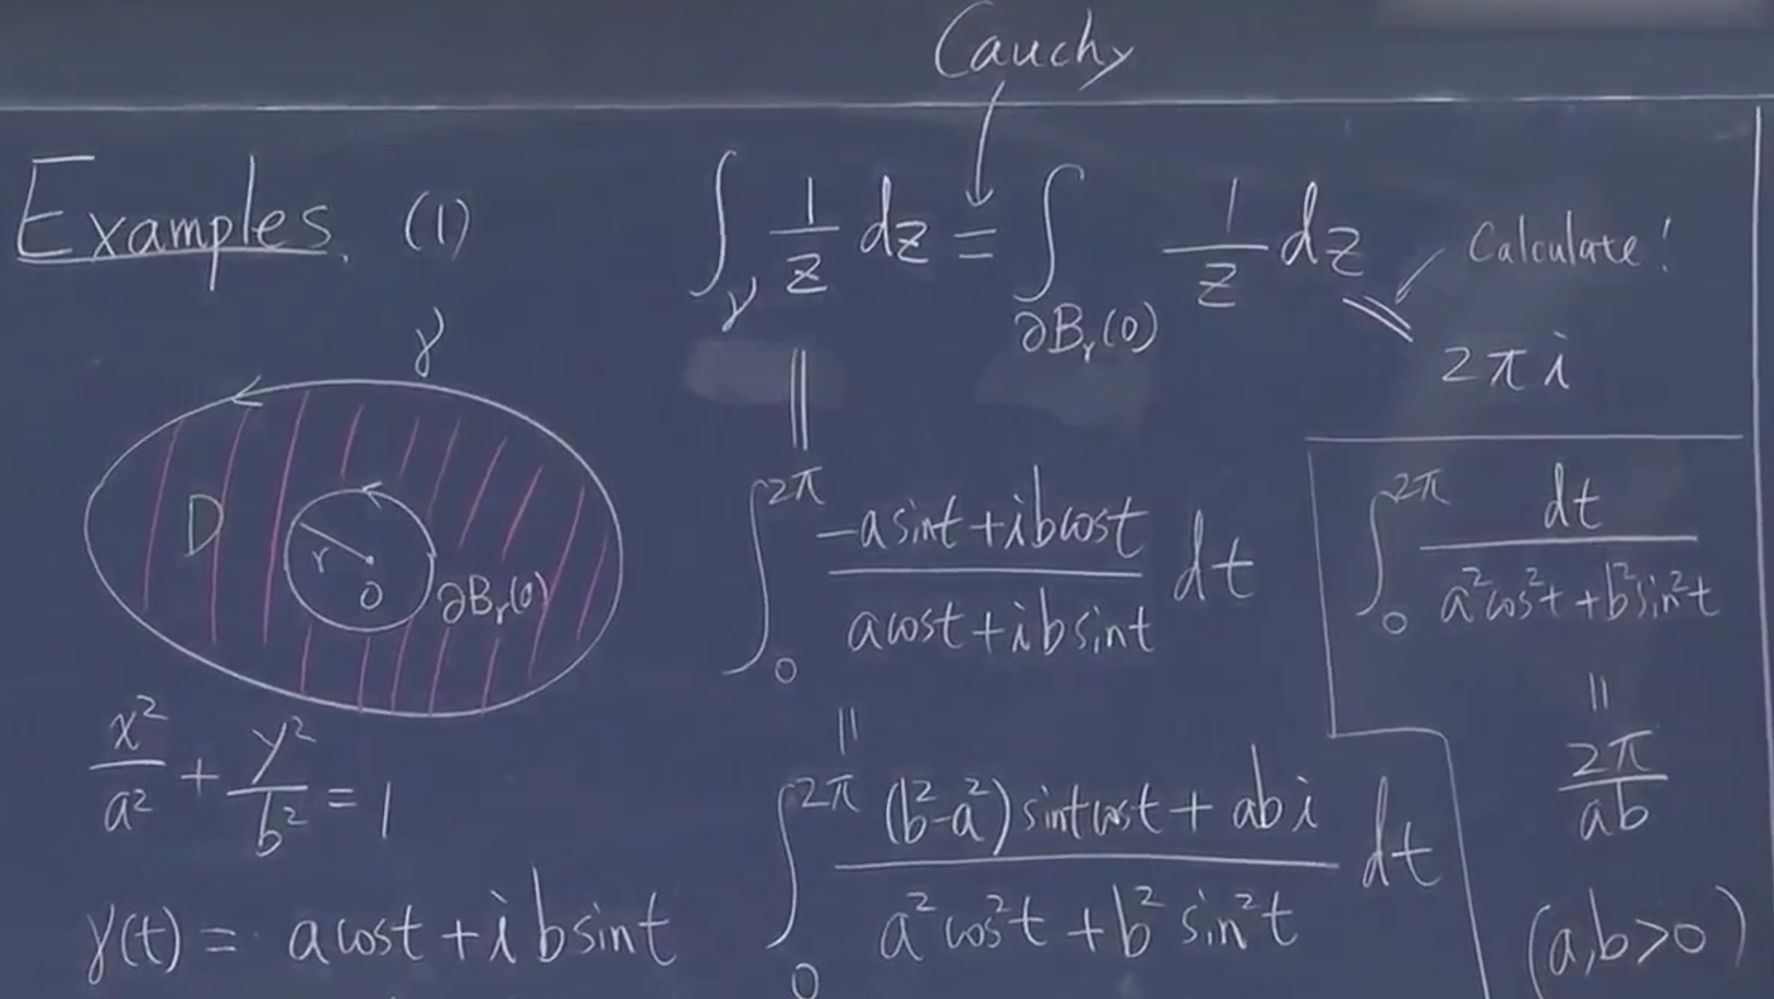 Cauchy
Examples. (1)
∫_γ 1/z dz = ∫_{∂B_r(0)} 1/z dz
Calculate!
= 2πi
γ
D
r
0
∂B_r(0)
x²/a² + y²/b² = 1
γ(t) = a cos t + i b sin t
= ∫_0^{2π} (-a sin t + i b cos t)/(a cos t + i b sin t) dt
= ∫_0^{2π} ((b²-a²) sin t cos t + abi)/(a² cos² t + b² sin² t) dt
∫_0^{2π} dt/(a² cos² t + b² sin² t)
= 2π/ab
(a,b>0)